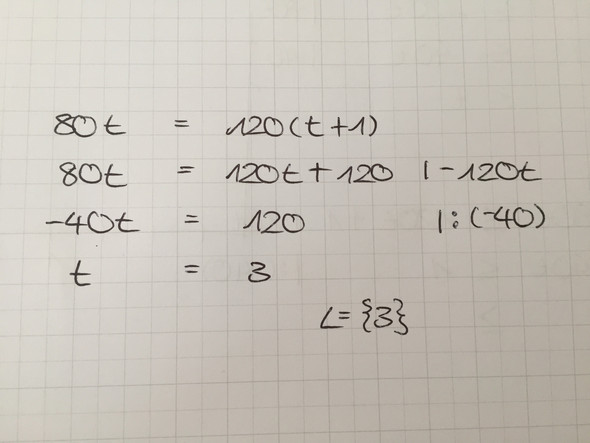 80t = 120(t+1)
80t = 120t + 120 | -120t
-40t = 120 | : (-40)
t = 3
L = {3}